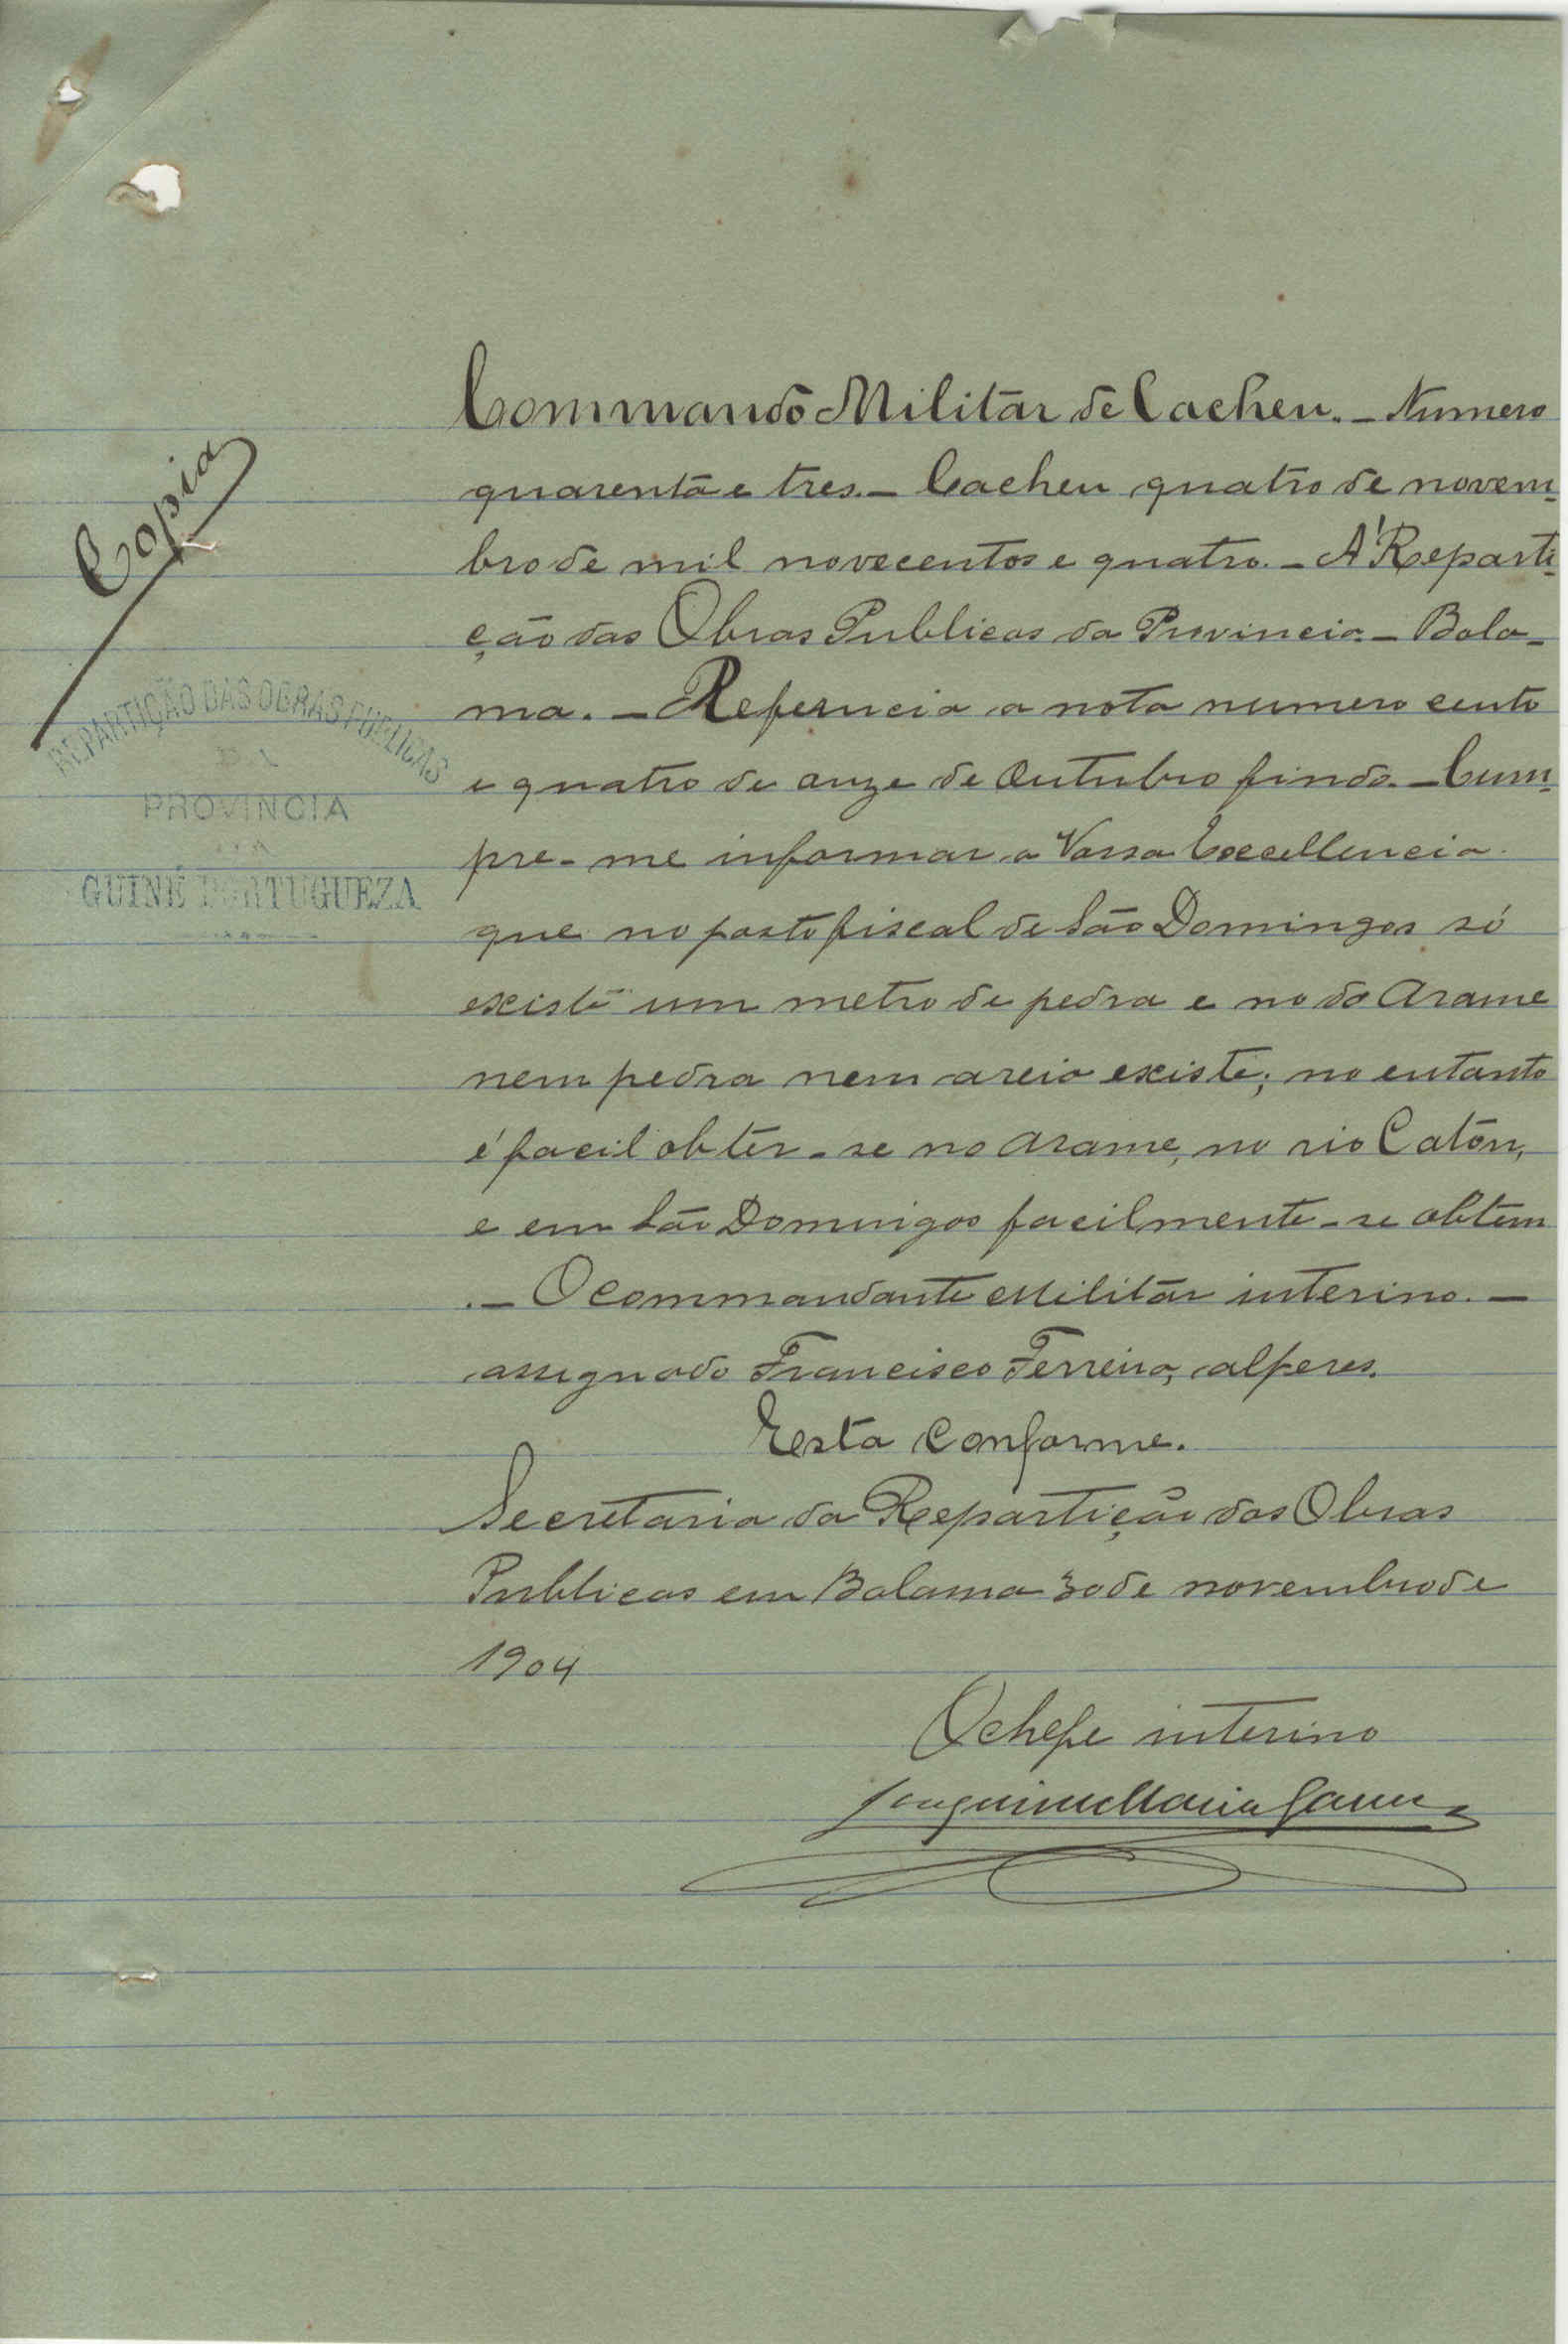 Copia
REPARTIÇÃO DAS OBRAS PUBLICAS
DA
PROVINCIA
DA
GUINÉ PORTUGUEZA
Commando Militar de Cacheu. _ Numero
quarenta e tres. _ Cacheu quatro de novem_
bro de mil novecentos e quatro. _ A' Reparti_
ção das Obras Publicas da Provincia _ Bola_
ma. _ Referncia a nota numero cento
e quatro de onze de Outubro findo. _ Cum_
pre-me informar a Vossa Excellencia
que no posto fiscal de São Domingos só
existe um metro de pedra e no do Arame
nem pedra nem areia existe; no entanto
é facil obter-se no Arame, no rio Caton,
e em São Domingos facilmente-se obtem
. _ O commandante Militar interino. _
assignado Francisco Ferreira, alferes.
Esta conforme.
Secretaria da Repartição das Obras
Publicas em Bolama 30 de novembro de
1904
O chefe interino
Joaquim Maria